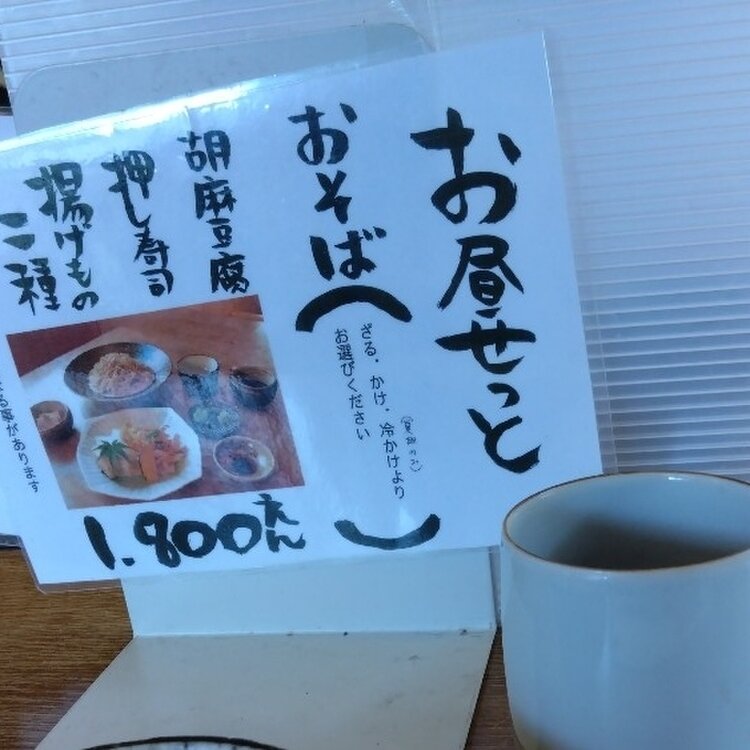 お昼せっと
おそば
(ざる・かけ・冷かけより
お選びください)
胡麻豆腐
押し寿司
揚げもの
二種
1.800えん
る事があります